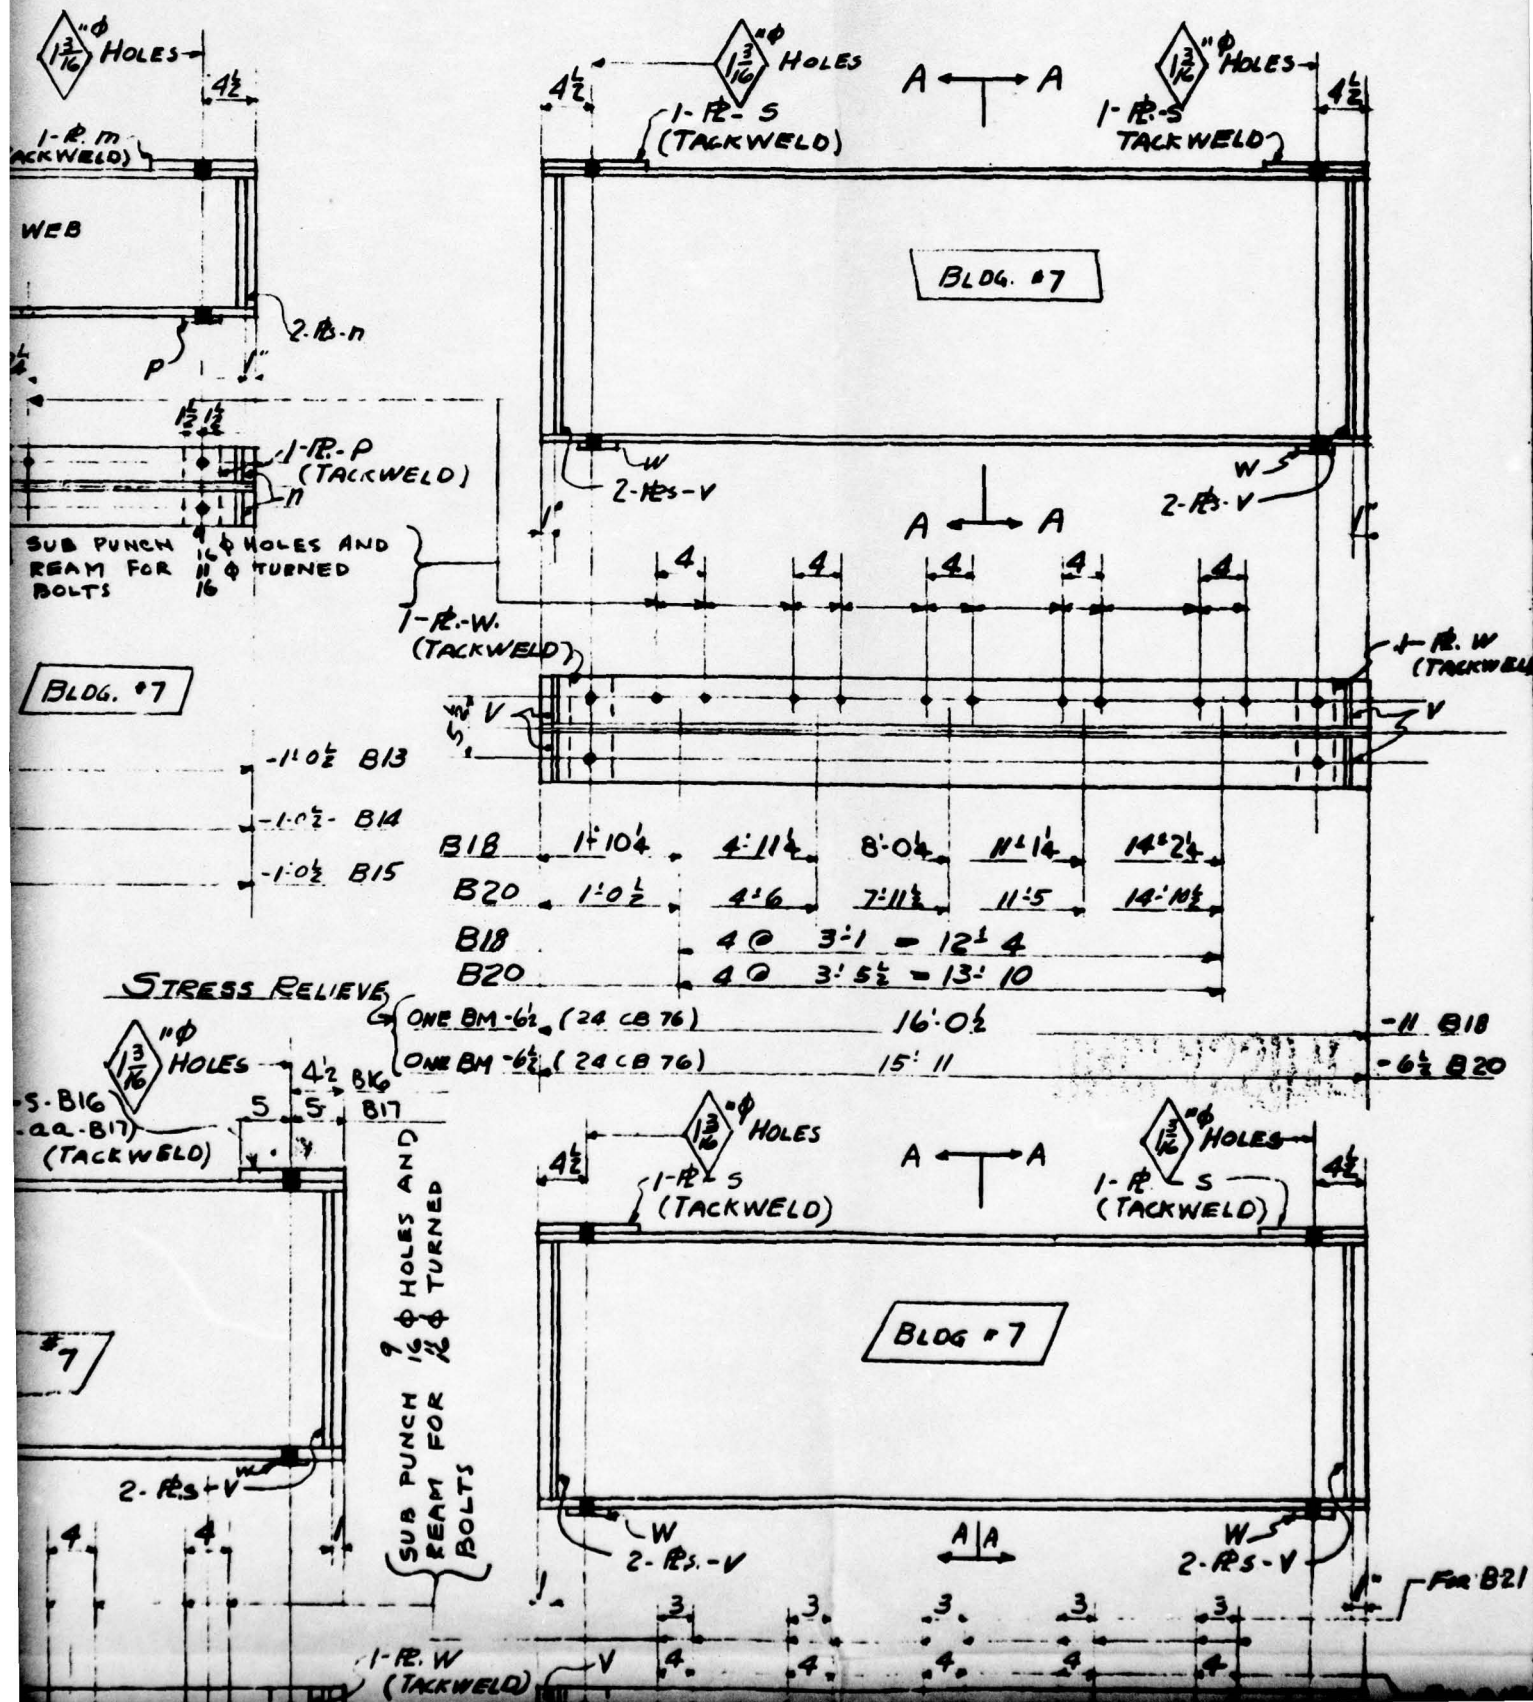 1 3/16 "φ HOLES
4 1/2
1-PL. m
TACKWELD)
WEB
2-PLs-n
P
1"
1 1/2 1 1/2
1-PL.-P
(TACKWELD)
n
SUB PUNCH 9/16 φ HOLES AND
REAM FOR 11/16 φ TURNED
BOLTS
BLDG. #7
-1'-0 1/2 B13
-1-0 1/2- B14
-1'-0 1/2 B15
1 3/16 "φ HOLES
4 1/2
1-PL- S
(TACKWELD)
A A
1 3/16 "φ HOLES
4 1/2
1-PL.-S
TACKWELD
BLDG. #7
W
2-PLs-V
W
2-PLs-V
1"
A A
1"
4 4 4 4 4
1-PL.-W.
(TACKWELD)
1-PL. W
(TACKWEL
5 1/2
V
V
B18 1'-10 1/4 4'-11 1/4 8'-0 1/4 11'-1 1/4 14'-2 1/4
B20 1'-0 1/2 4'-6 7'-11 1/2 11'-5 14'-10 1/2
B18 4 @ 3'-1 = 12'-4
B20 4 @ 3'-5 1/2 = 13'-10
STRESS RELIEVE
ONE BM -6 1/2 (24 CB 76) 16'-0 1/2 -11 B18
ONE BM -6 1/2 (24 CB 76) 15'-11 -6 1/2 B20
1 3/16 "φ
HOLES
4 1/2 B16
5 5 B17
-S-B16
-aa-B17)
(TACKWELD)
#7
W
2-PLs-V
4 4 1
SUB PUNCH 9/16 φ HOLES AND
REAM FOR 11/16 φ TURNED
BOLTS
1-PL. W
(TACKWELD)
1 3/16 "φ HOLES
4 1/2
1-PL S
(TACKWELD)
A A
1 3/16 "φ HOLES
4 1/2
1-PL S
(TACKWELD)
BLDG #7
W
2-PLs.-V
A A
W
2-PLs-V
1
1"
FOR B21
3 3 3 3 3
V
4 4 4 4 4